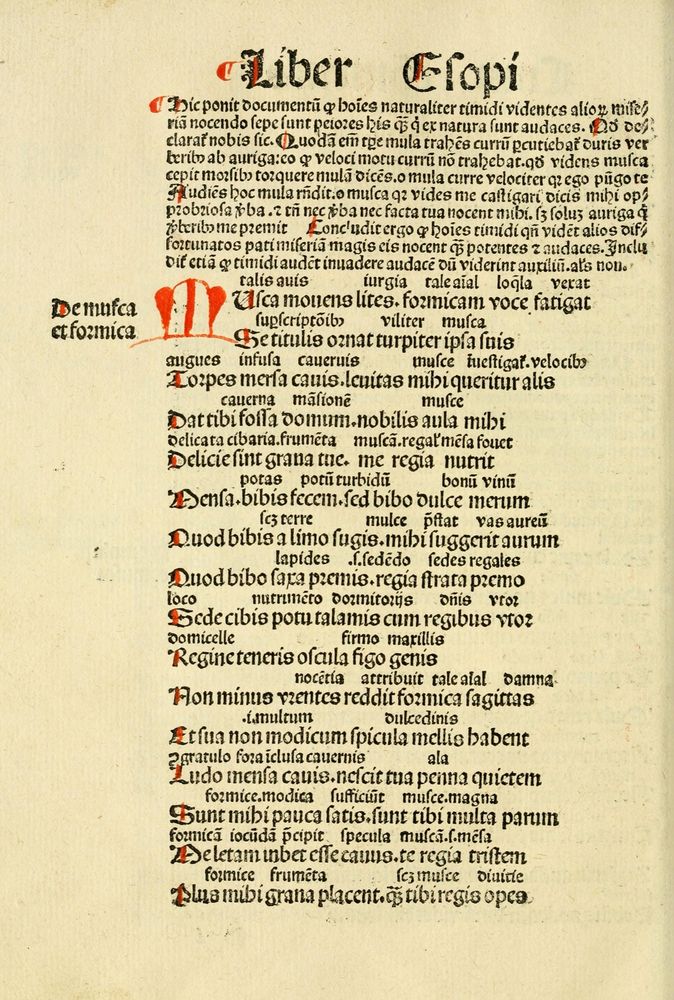 ¶ Liber Esopi
¶ Hic ponit documentũ ꝙ hoĩes naturaliter timidi videntes alioꝝ mise⸗
riã nocendo sepe sunt peiores his q̃ȝ q̇ ex natura sunt audaces. Qđ de⸗
clarat̃ nobis sic. Quodã em̃ tꝑe mula trahẽs currũ ꝑcutiebat̃ duris ver
beribꝰ ab auriga: eo ꝙ veloci motu currũ nõ trahebat. qđ videns musca
cepit morsibꝰ torquere mulã dicẽs. o mula curre velociter qꝛ ego pũgo te
Audiẽs hoc mula rñdit. o musca qꝛ vides me castigari dicis mihi op⸗
probriosa v̾ba. ⁊ tñ nec v̾ba nec facta tua nocent mihi. sꝫ solus auriga q̇
v̾beribꝰ me premit Concludit ergo ꝙ hoĩes timidi qñ vidẽt alios dis⸗
fortunatos pati miseriã magis eis nocent q̃ȝ potentes ⁊ audaces. Inclu
dit̃ etiã ꝙ timidi audẽt inuadere audacẽ dũ viderint auxiliũ. als̃ non.
talis auis iurgia tale aĩal loq̃la vexat
De musca
et formica
MUsca mouens lites. formicam voce fatigat
suꝑscriptõibꝰ viliter musca
Se titulis ornat turpiter ipsa suis
augues infusa caueruis musce ĩuestigat̃. velocibꝰ
Torpes mersa cauis. leuitas mihi queritur alis
cauerna mãsionẽ musce
Dat tibi fossa domum. nobilis aula mihi
delicata cibaria. frumẽta muscã. regal̃ mẽsa fouet
Delicie sint grana tue. me regia nutrit
potas potũ turbidũ bonũ vinũ
Mensa. bibis fecem. sed bibo dulce merum
sꝫ terre mulce p̃stat vas aureũ
Quod bibis a limo sugis. mihi suggerit aurum
lapides .s. sedẽdo sedes regales
Quod bibo saxa premis. regia strata premo
loco nutrimẽto dormitorijs dñis vtor
Sede cibis potu talamis cum regibus vtor
domicelle firmo maxillis
Regine teneris oscula figo genis
nocẽtia attribuit tale aĩal damna
Non minus vrentes reddit formica sagittas
.i. multum dulcedinis
Et sua non modicum spicula mellis habent
ꝯgratulo fora ĩclusa cauernis ala
Ludo mensa cauis. nescit tua penna quietem
formice. modica sufficiũt musce. magna
Sunt mihi pauca satis. sunt tibi multa parum
formicã iocũdã p̃cipit specula muscã. s. mẽsa
Me letam iubet esse cauus. te regia tristem
formice frumẽta sꝫ musce diuitie
Plus mihi grana placent. q̃ȝ tibi regis opes